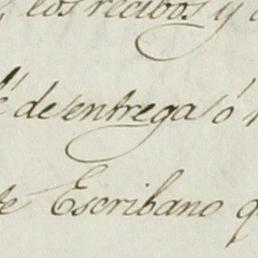 los recibos y
de entrega ó
Escribano